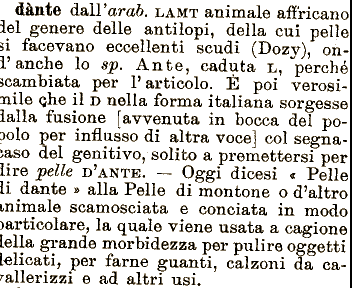 dànte dall'arab. LAMT animale affricano
del genere delle antilopi, della cui pelle
si facevano eccellenti scudi (Dozy), on-
d'anche lo sp. Ante, caduta L, perché
scambiata per l'articolo. È poi verosi-
mile che il D nella forma italiana sorgesse
dalla fusione [avvenuta in bocca del po-
polo per influsso di altra voce] col segna-
caso del genitivo, solito a premettersi per
dire pelle D'ANTE. — Oggi dicesi « Pelle
di dante » alla Pelle di montone o d'altro
animale scamosciata e conciata in modo
particolare, la quale viene usata a cagione
della grande morbidezza per pulire oggetti
delicati, per farne guanti, calzoni da ca-
vallerizzi e ad altri usi.